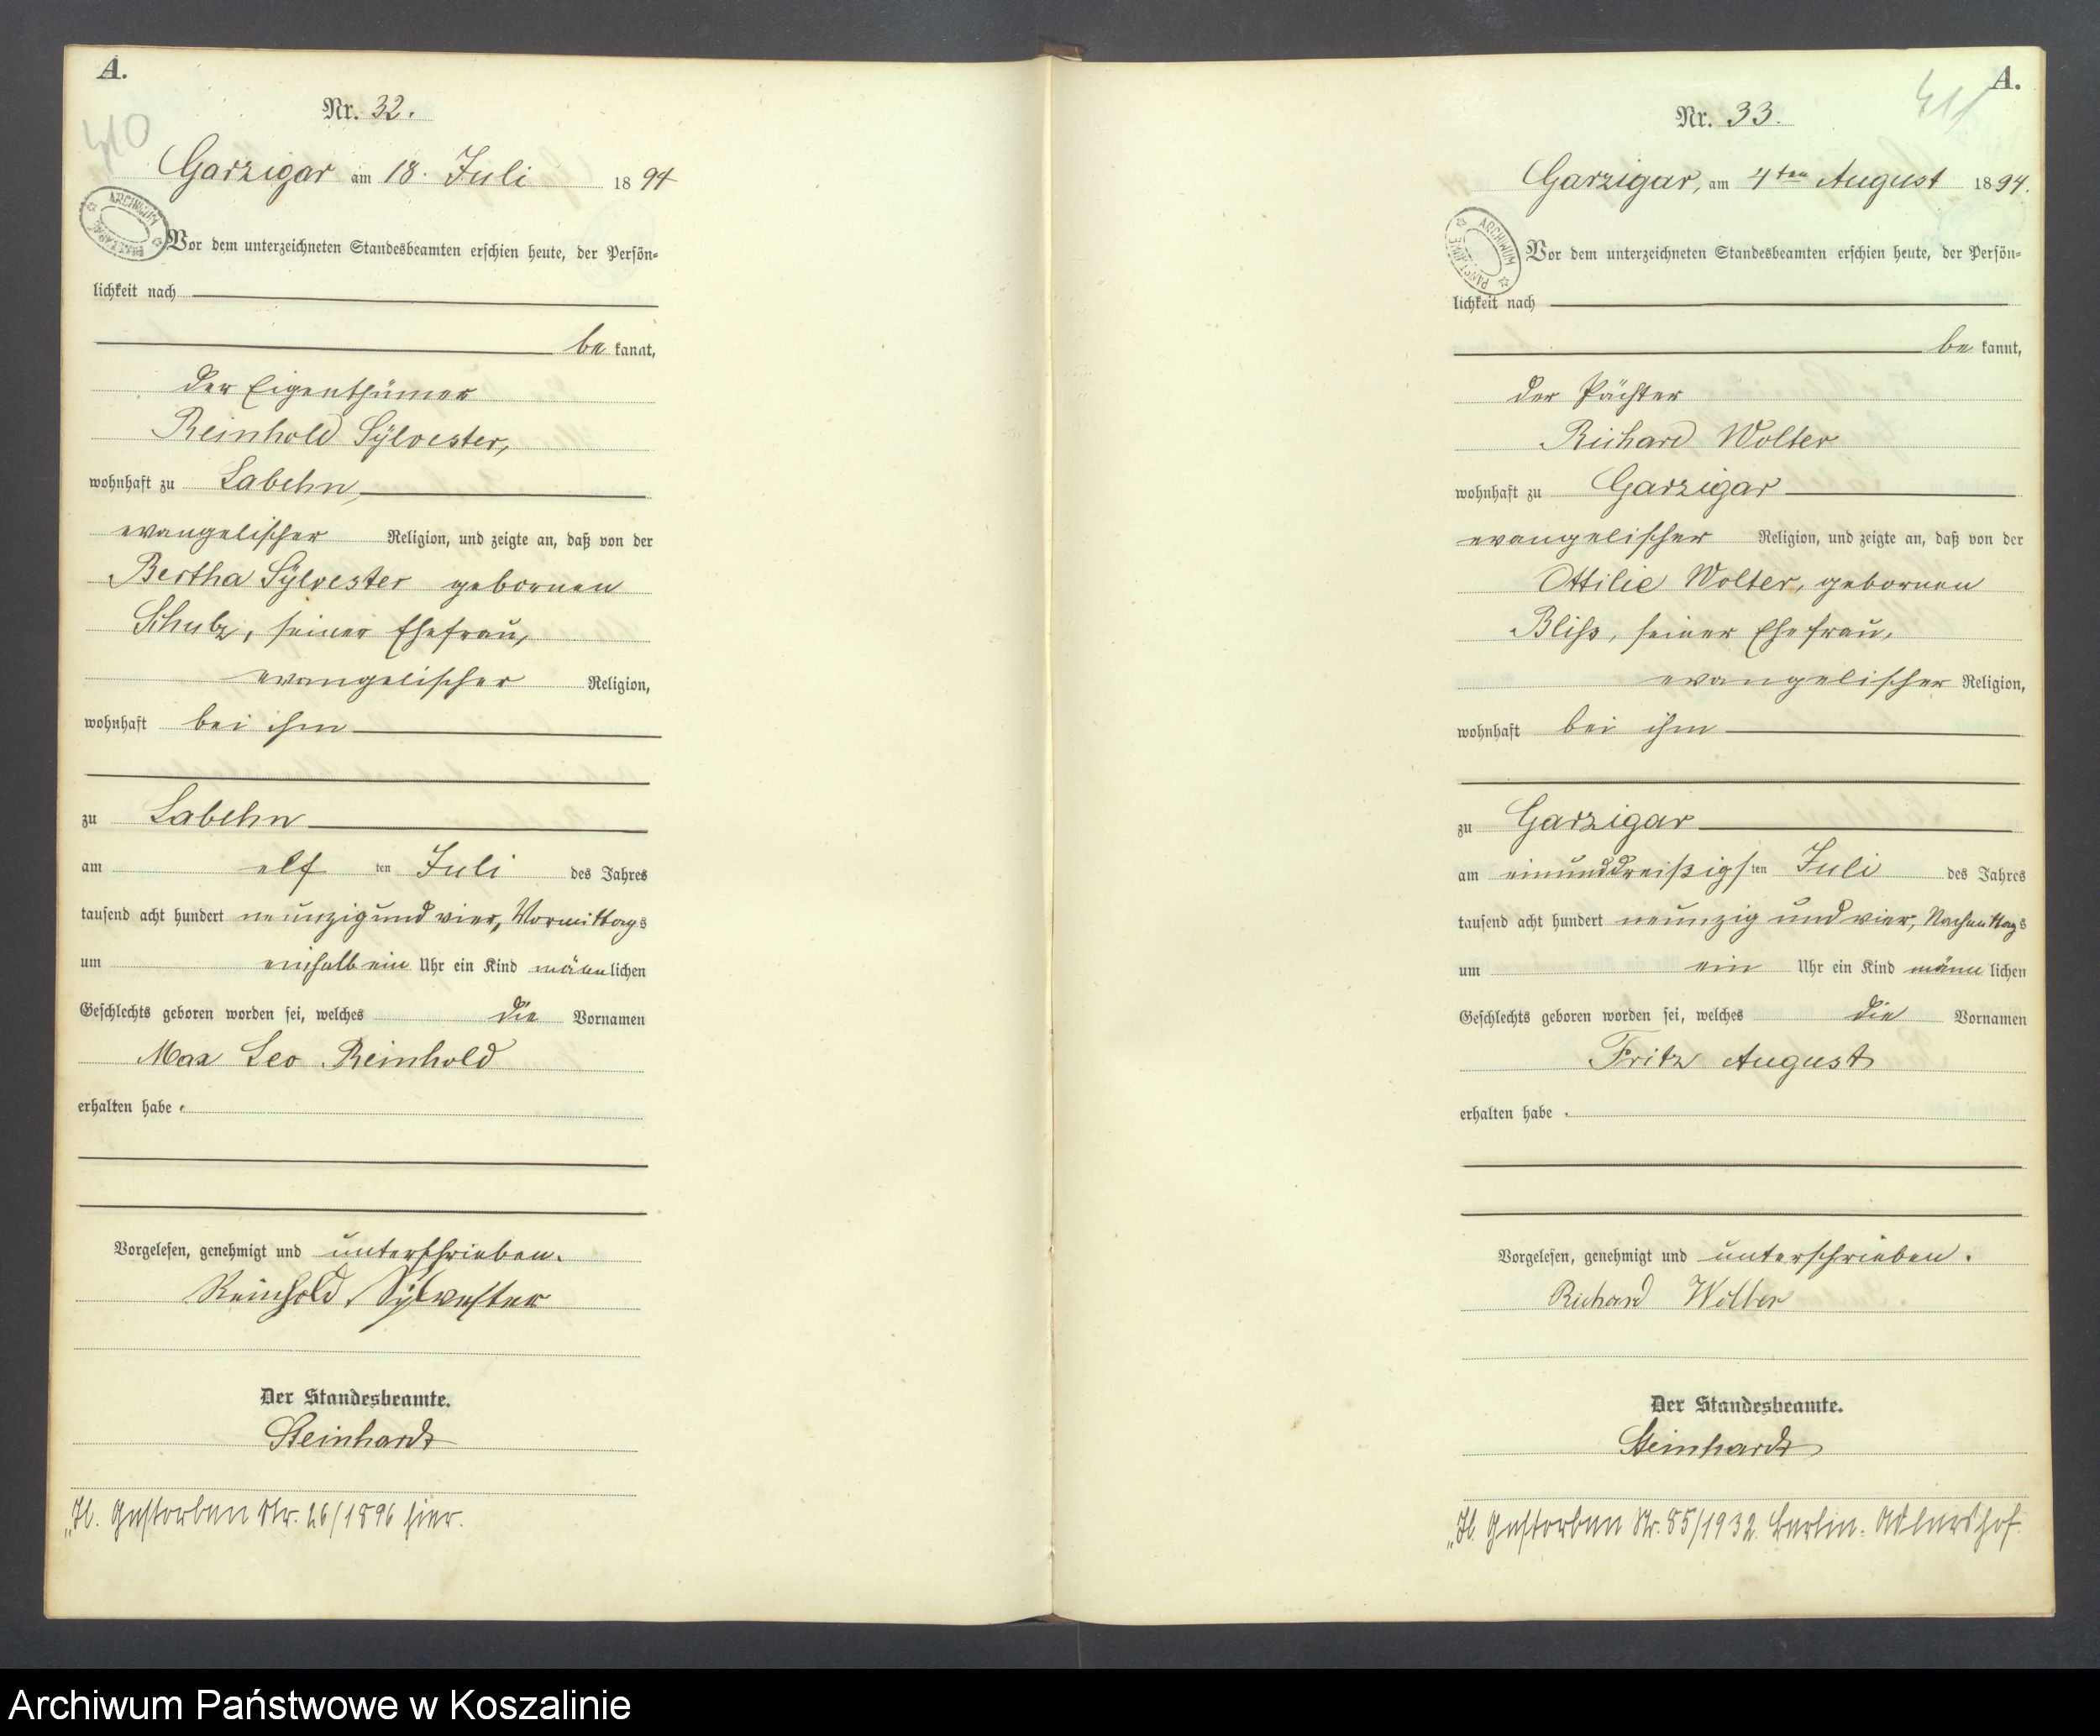 A.
Nr. 32.
410
Garzigar am 18. Juli 1894
ARCHIWUM
Vor dem unterzeichneten Standesbeamten erschien heute, der Persön-
lichkeit nach
be kannt,
der Eigenthümer
Reinhold Sÿlvester,
wohnhaft zu Labehn,
evangelischer Religion, und zeigte an, daß von der
Bertha Sÿlvester gebornen
Schulz, seiner Ehefrau,
evangelischer Religion,
wohnhaft bei ihm
zu Labehn
am elf ten Juli des Jahres
tausend acht hundert neunzig und vier, Vormittags
um einhalb ein Uhr ein Kind männlichen
Geschlechts geboren worden sei, welches die Vornamen
Max Leo Reinhold
erhalten habe.
Vorgelesen, genehmigt und unterschrieben.
Reinhold Sylvester
Der Standesbeamte.
Steinhardt
„H. Gestorben Nr. 26/1896 hier.
A.
411
Nr. 33.
Garzigar, am 4ten August 1894.
ARCHIWUM PAŃSTWOWE
Vor dem unterzeichneten Standesbeamten erschien heute, der Persön-
lichkeit nach
be kannt,
der Pächter
Richard Wolter
wohnhaft zu Garzigar
evangelischer Religion, und zeigte an, daß von der
Ottilie Wolter, gebornen
Bliß, seiner Ehefrau,
evangelischer Religion,
wohnhaft bei ihm
zu Garzigar
am einunddreißigsten Juli des Jahres
tausend acht hundert neunzig und vier, Nachmittags
um ein Uhr ein Kind männlichen
Geschlechts geboren worden sei, welches die Vornamen
Fritz August
erhalten habe.
Vorgelesen, genehmigt und unterschrieben.
Richard Wolter
Der Standesbeamte.
Steinhardt
„H. Gestorben Nr. 85/1932. Berlin-Adlershof.
Archiwum Państwowe w Koszalinie